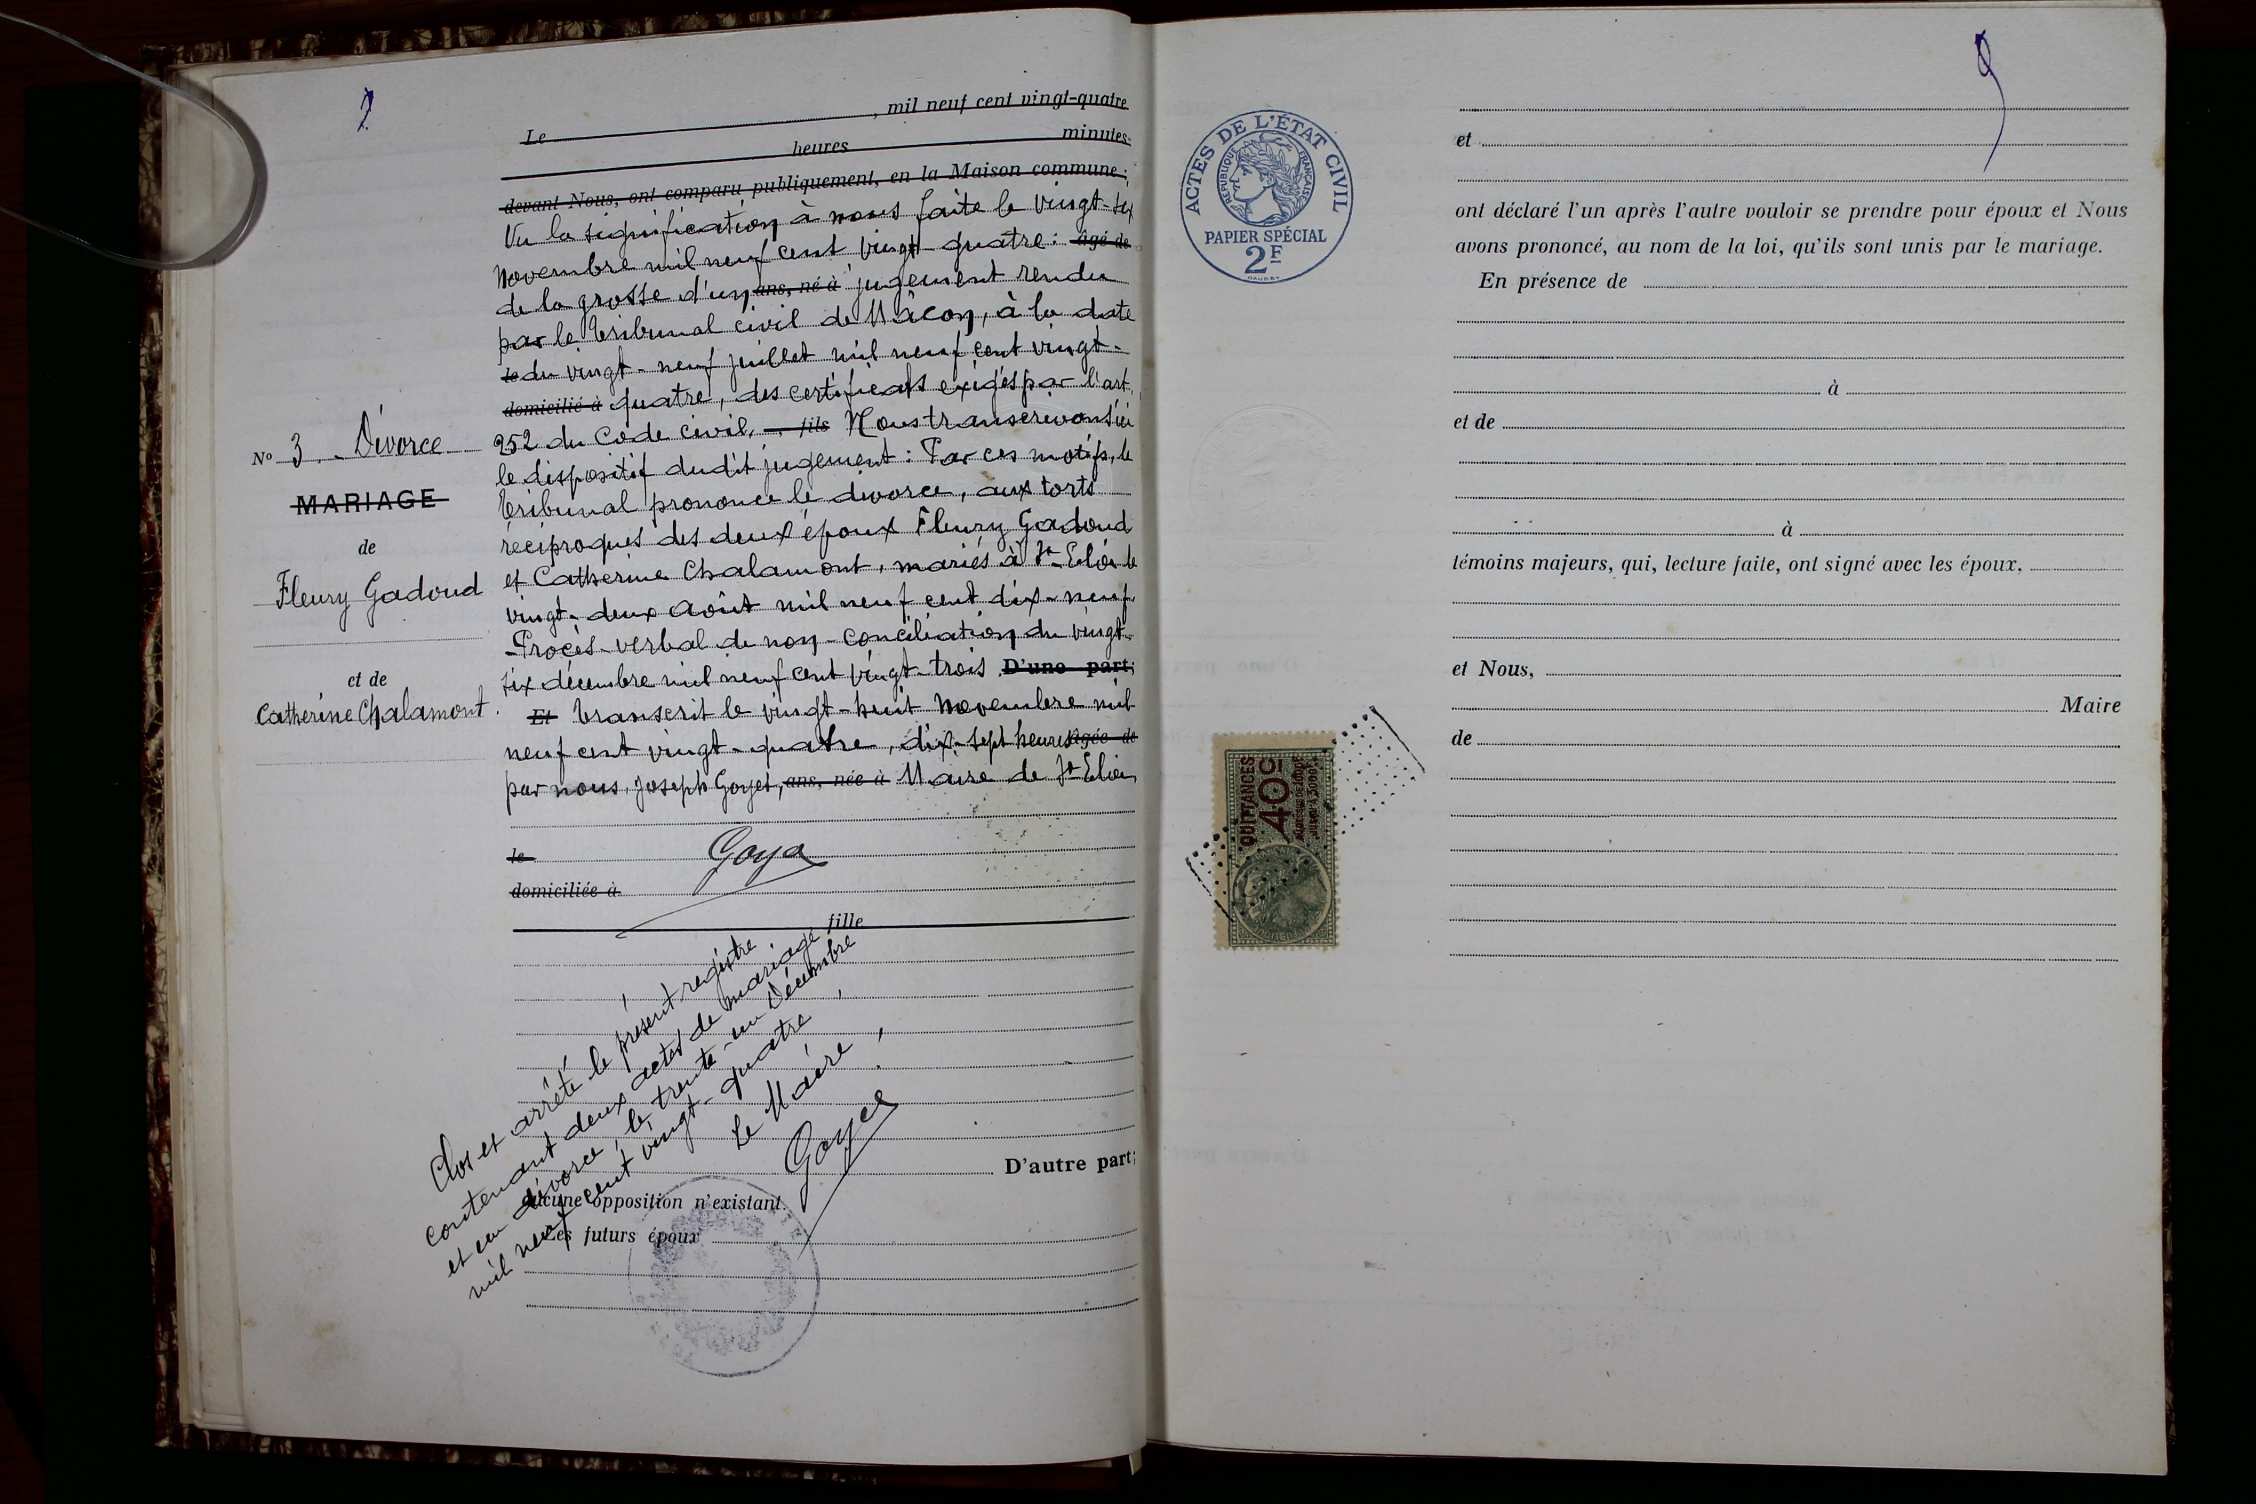 Le , mil neuf cent vingt-quatre
heures minutes
devant Nous, ont comparu publiquement, en la Maison commune:
Vu la signification à nous faite le vingt-six
Novembre mil neuf cent vingt quatre: âgé de
de la grosse d'un ans, né à jugement rendu
par le tribunal civil de Mâcon, à la date
le du vingt-neuf juillet mil neuf cent vingt-
domicilié à quatre, des certificats exigés par l'art.
252 du Code civil, fils Nous transcrivons ici
le dispositif dudit jugement: Par ces motifs, le
tribunal prononce le divorce, aux torts
réciproques des deux époux Fleury Gadoud
et Catherine Chalamont, mariés à St Eloi le
vingt-deux Août mil neuf cent dix-neuf
Procès-verbal de non-conciliation du vingt-
six décembre mil neuf cent vingt-trois. D'une part;
Et transcrit le vingt-huit Novembre mil
neuf cent vingt-quatre, dix-sept heures âgée de
par nous, Joseph Goyet, ans, née à Maire de St Eloi
le Goyet
domiciliée à
fille
No 3. - Divorce
MARIAGE
de
Fleury Gadoud
et de
Catherine Chalamont.
Clos et arrêté le présent registre
contenant deux actes de mariage
et un divorce, le trente-un Décembre
mil neuf cent vingt-quatre,
Le Maire,
Goyet
D'autre part;
aucune opposition n'existant.
Les futurs époux
ACTES DE L'ÉTAT CIVIL
RÉPUBLIQUE FRANÇAISE
PAPIER SPÉCIAL
2F
QUITTANCES
40c
9
et
ont déclaré l'un après l'autre vouloir se prendre pour époux et Nous
avons prononcé, au nom de la loi, qu'ils sont unis par le mariage.
En présence de
à
et de
à
témoins majeurs, qui, lecture faite, ont signé avec les époux,
et Nous,
Maire
de